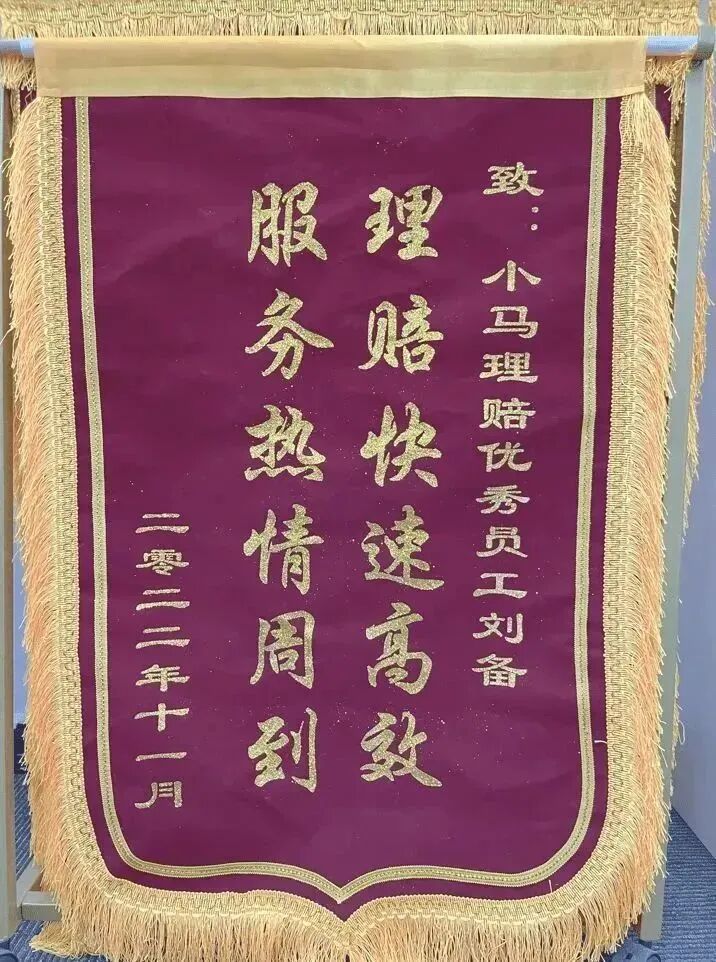 致：小马理赔优秀员工刘备
理赔快速高效
服务热情周到
二零二二年十一月